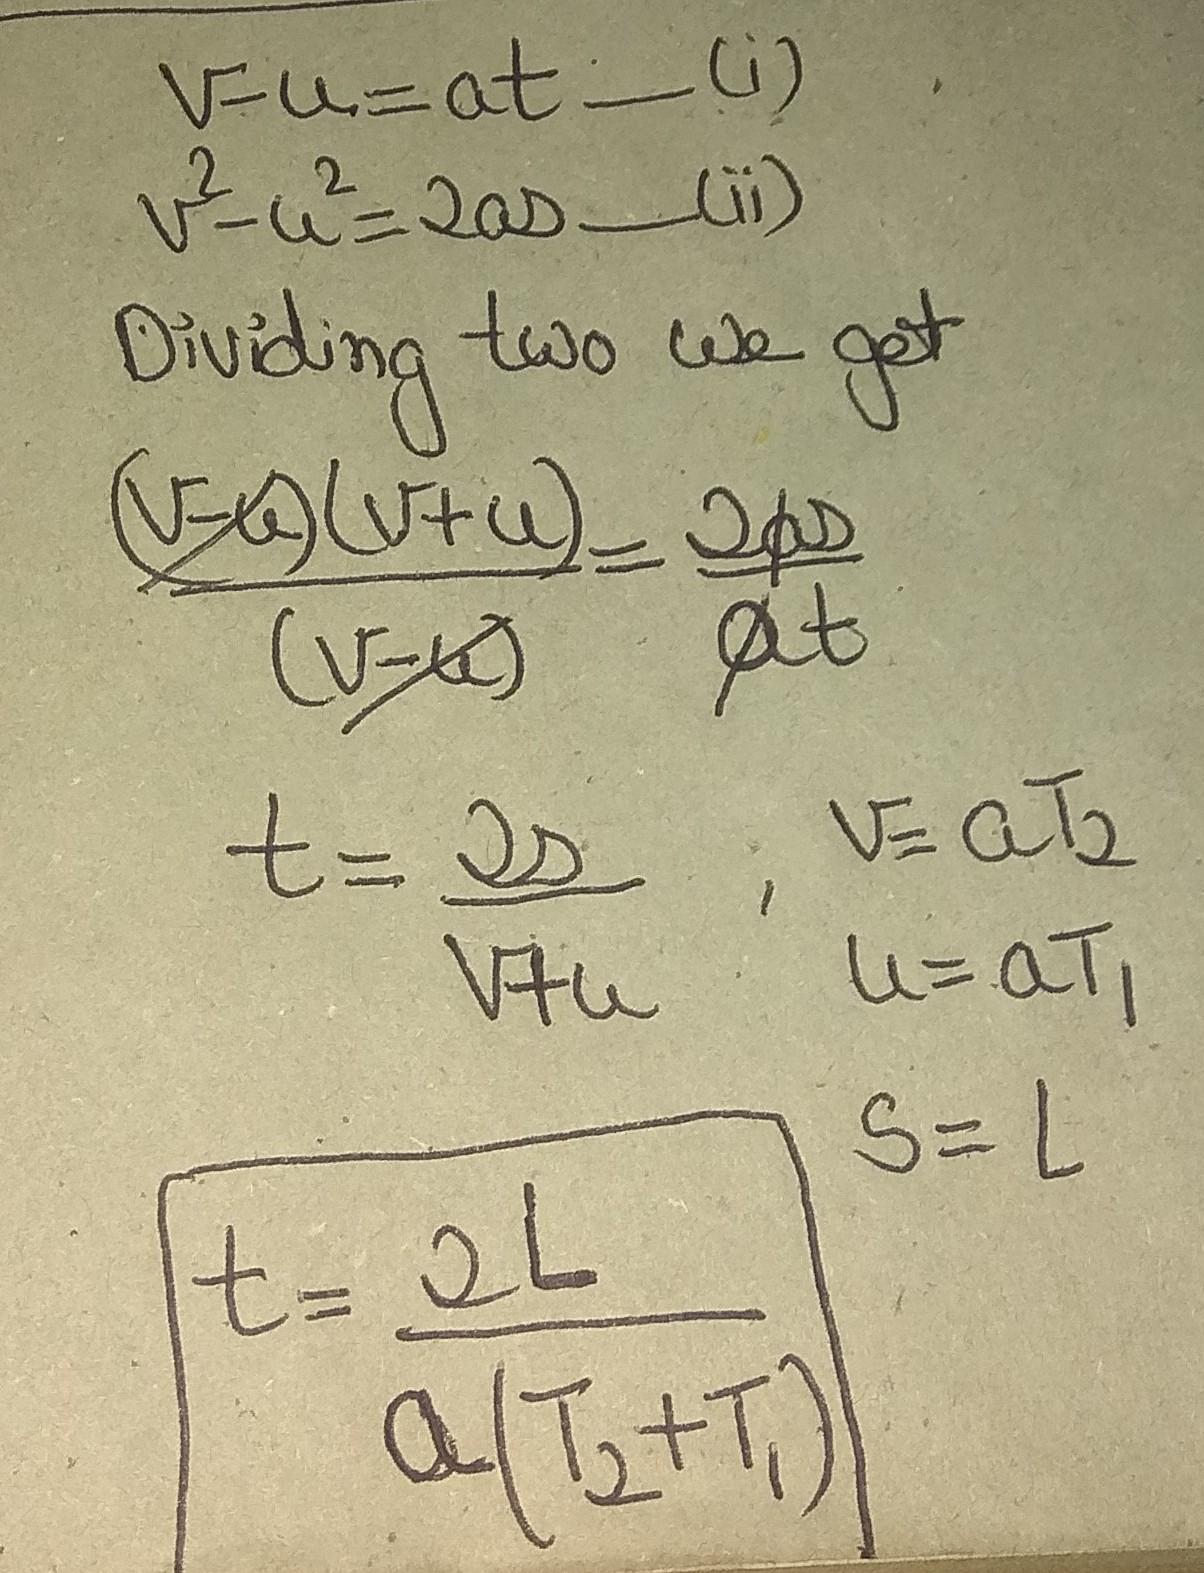 v-u=at —(i)
v²-u²=2as —(ii)
Dividing two we get
(v-u)(v+u)/(v-u) = 2as/at
t = 2s/v+u , v=aT₂
u=aT₁
S=L
t = 2L/a(T₂+T₁)